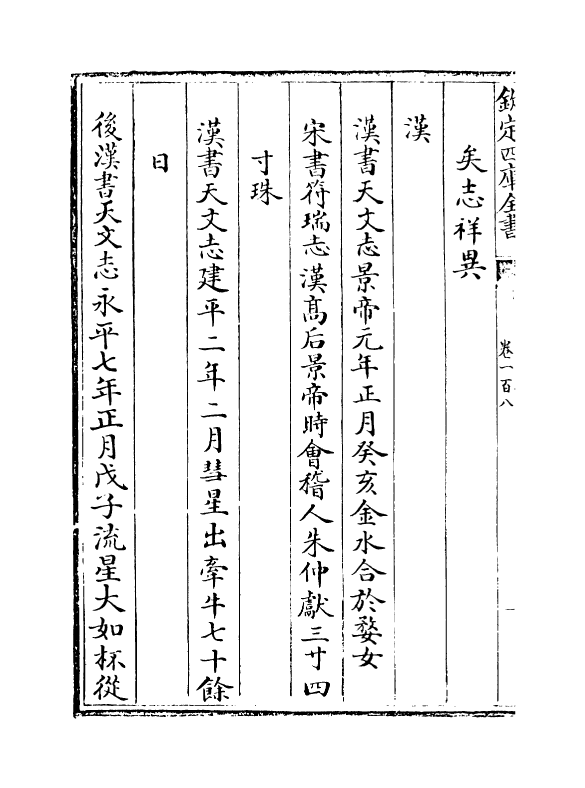 欽定四庫全書
卷一百八
矣志祥異
漢
漢書天文志景帝元年正月癸亥金水合於婺女
宋書符瑞志漢髙后景帝時會稽人朱仲獻三寸四
寸珠
漢書天文志建平二年二月彗星出牽牛七十餘
日
後漢書天文志永平七年正月戊子流星大如杯從